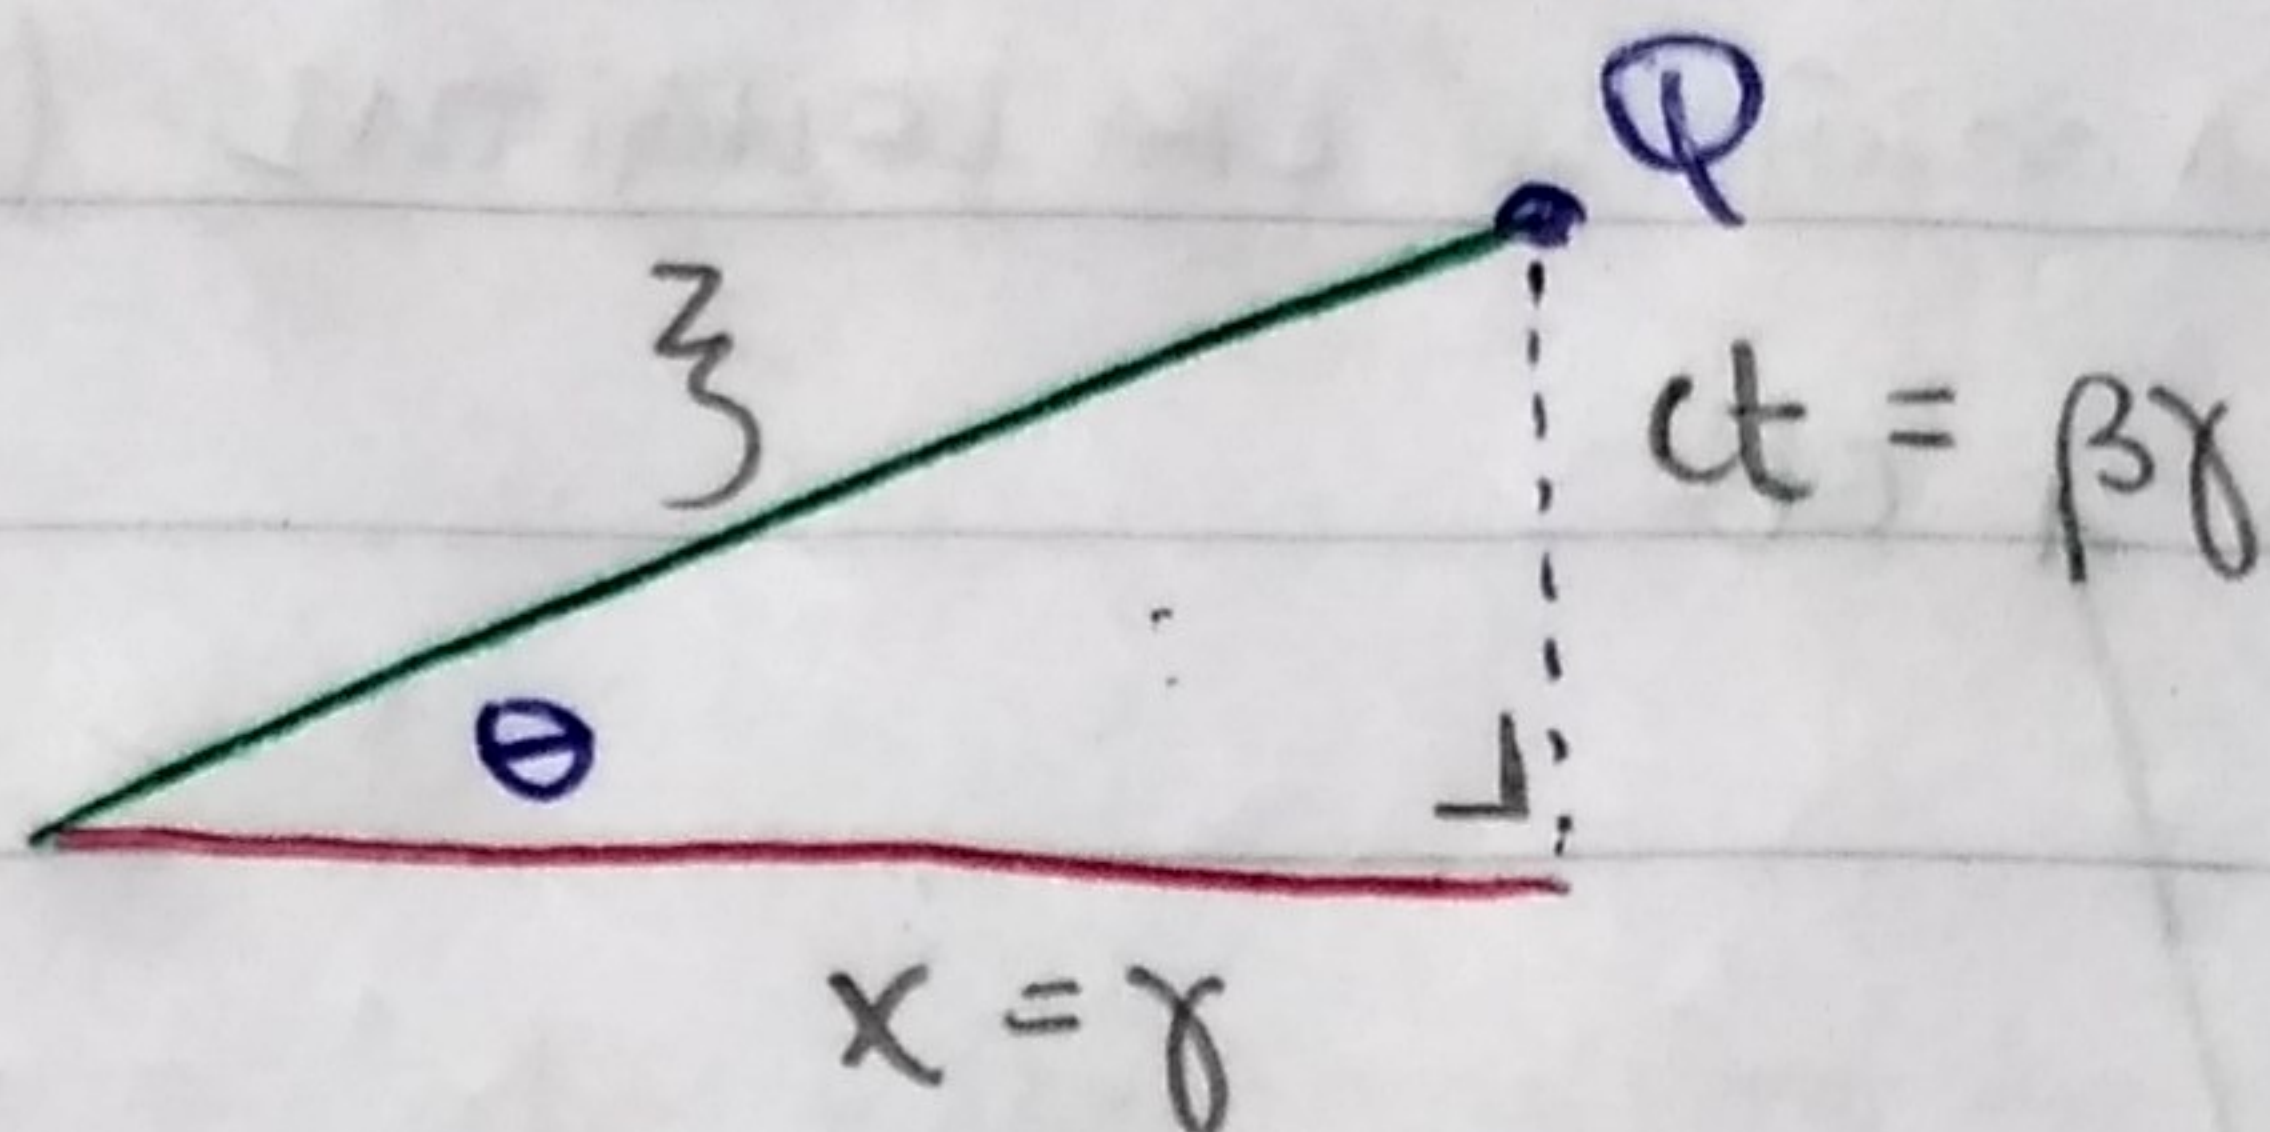 Q
ξ
ct = βγ
θ
x = γ